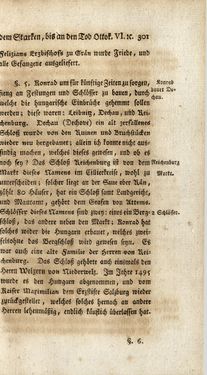 dem Starken, bis an den Tod Ottok. VI. ꝛc. 301
Felizians Erzbischofs zu Grän wurde Friede, und
alle Gefangene ausgeliefert.
§. 5. Konrad um für künftige Zeiten zu sorgen,
fieng an Festungen und Schlösser zu bauen, durch
welche die hungarische Einbrüche gehemmt sollen
werden, diese waren: Leibnitz, Dechau, und Rei-
chenburg. Dechau (Dechane) ein alt zerfallenes
Schloß ist unbekannt von den Ruinen und Bruchstücken
wieder neu erbauet worden; allein ich konnte nicht aus-
findig machen, welches dieses gewesen, und ob es
noch sey? Das Schloß Reichenburg ist von dem
Markte dieses Namens im Cillierkreise, wohl zu
unterscheiden: solcher liegt an der Save ober Ran,
zählt 80 Häuser, hat ein Schloß samt Landgericht,
und Mautamt, gehöret dem Grafen von Attems.
Schlösser dieses Namens sind zwey: eines das wirkliche
Schloß, das andere neben dem Markt. Konrad hat
solches wieder die Hungarn erbauet, welches zwei-
felsohne das Bergschloß wird gewesen seyn. Es
war auch eine alte Familie der Herren von Rei-
chenburg. Das Schloß gehörte auch einesmals den
Herrn Welzern von Niederwelz. Im Jahre 1495
wurde es den Hungarn abgenommen, und vom
Kaiser Maximilian dem Erzstifte Salzburg wieder
zurückgestellet, welches solches hernach an andere
Herren lehenmässig, endlich käuflich überlassen hat.
§. 6.
Konrad
bauet De-
chau.
Reichenburg
Markt.
2 Schlösser.